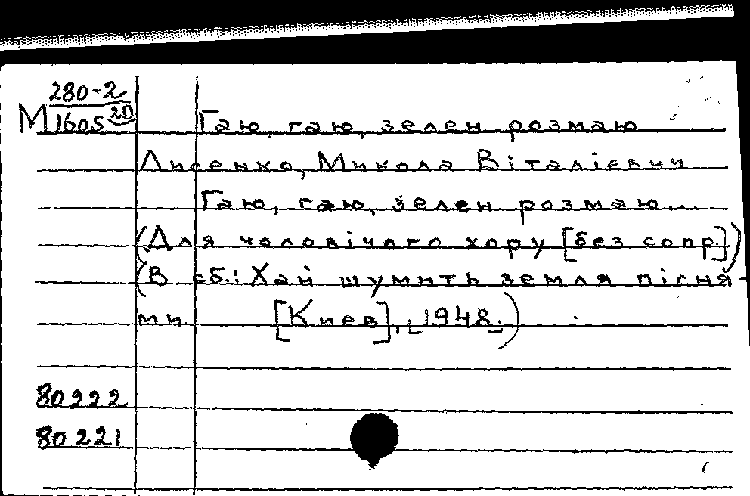 280-2
М 1605 20
Гаю, гаю, зелен розмаю
Лисенко, Микола Віталієвич
Гаю, гаю, зелен розмаю...
(Для чоловічого хору [без сопр.])
(В сб.: Хай шумить земля пісня-
ми [Киев], 1948.)
80222
80221